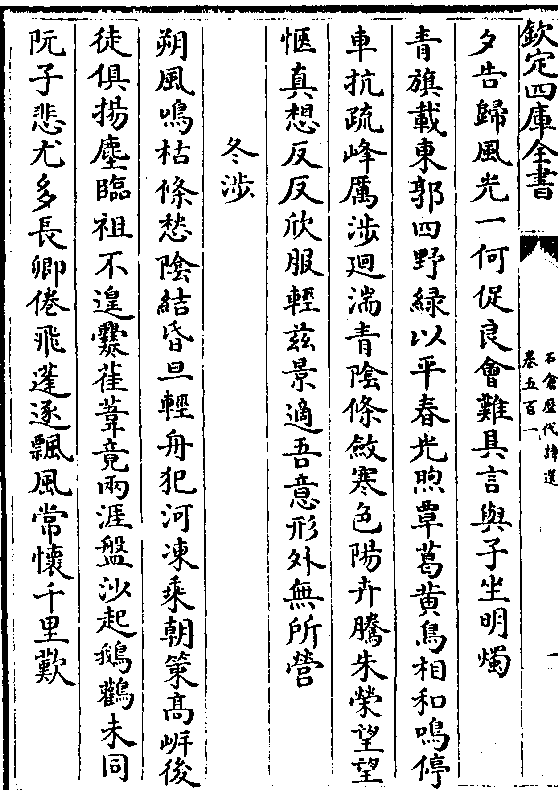 欽定四庫全書
石倉歷代詩選
卷五百一
一
夕告歸風光一何促良會難具言與子坐明燭
青旗載東郭四野緑以平春光煦覃葛黄鳥相和鳴停
車抗疏峰厲涉迴湍青陰條斂寒色陽卉騰朱榮望望
愜真想反反欣服輕兹景適吾意形外無所營
冬涉
朔風鳴枯條愁陰結昏旦輕舟犯河凍乘朝策髙岍後
徒俱揚塵臨祖不遑爨萑葦竟兩涯盤沙起鵝鸛未同
阮子悲尤多長卿倦飛蓬逐飄風常懷千里歎